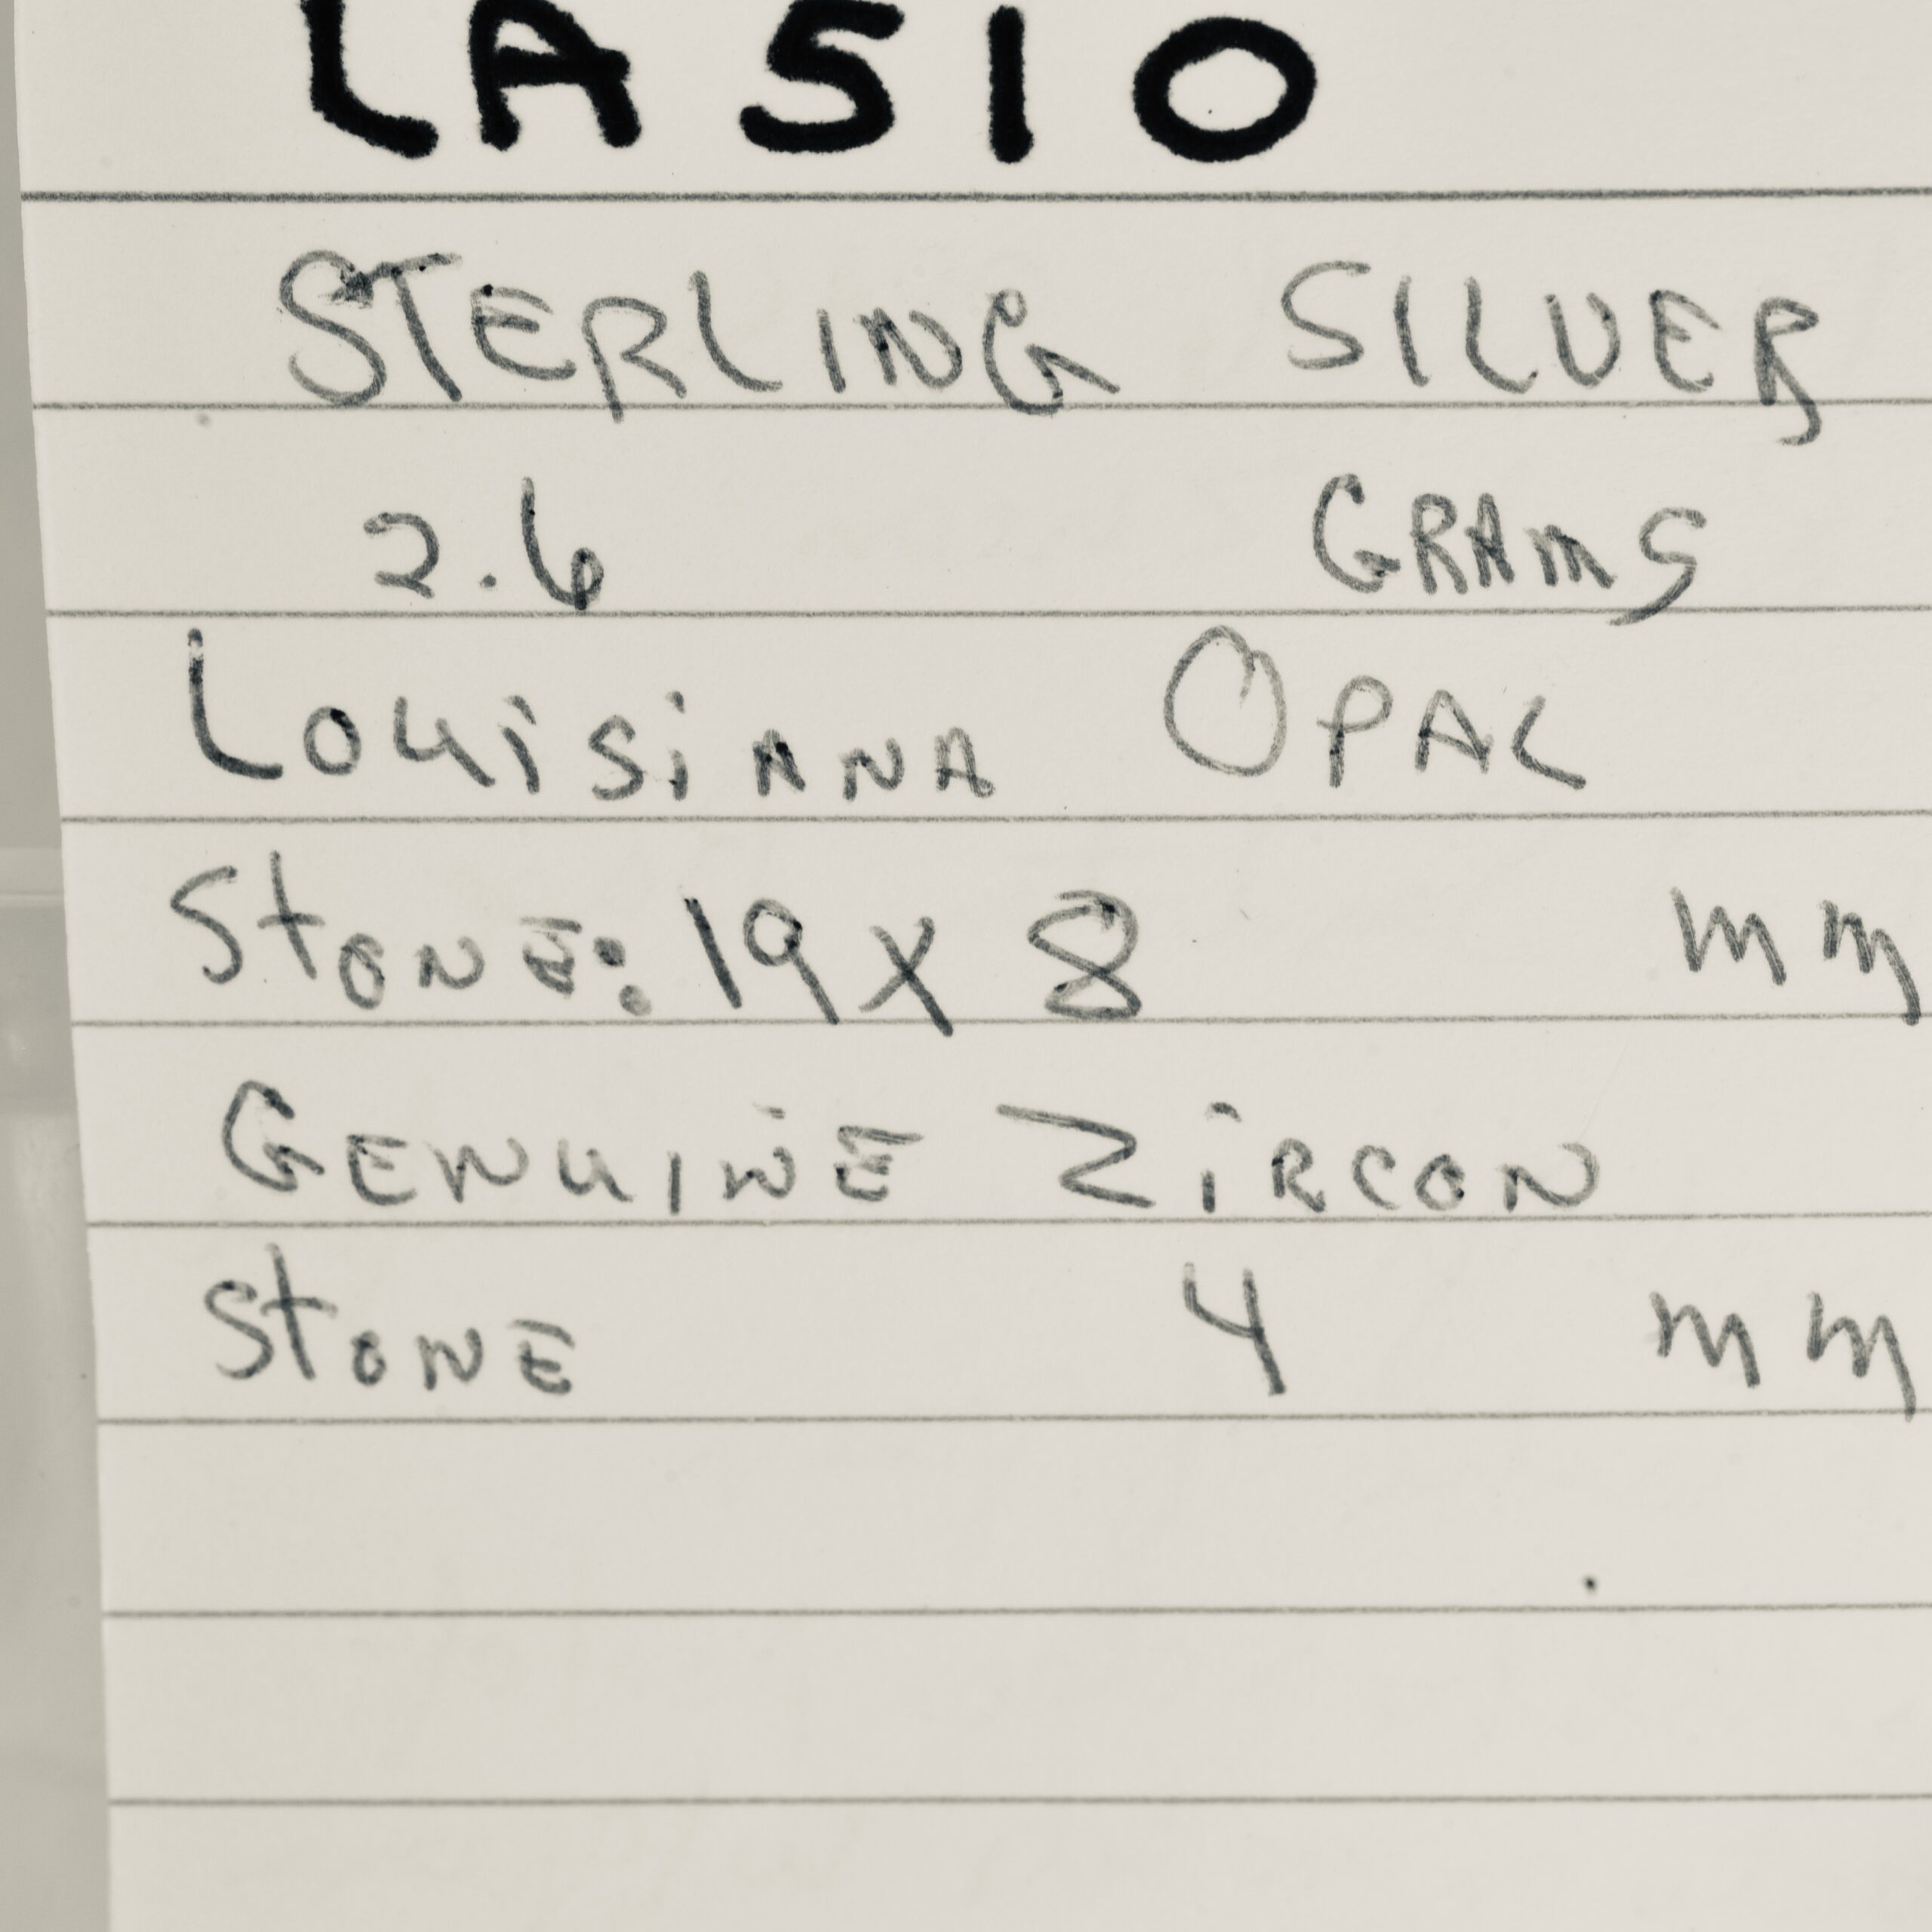 LA510
STERLING SILVER
2.6 GRAMS
LOUISIANA OPAL
STONE: 19 X 8 mm
GENUINE ZIRCON
STONE 4 mm